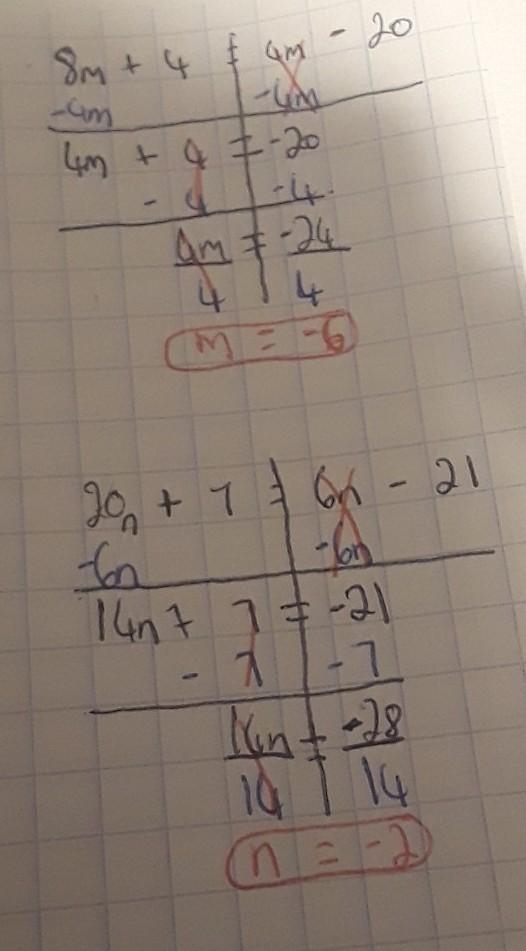 8m + 4 = 4m - 20
-4m -4m
4m + 4 = -20
- 4 -4
4m = -24
4 4
m = -6
20n + 7 = 6n - 21
-6n -6n
14n + 7 = -21
- 7 -7
14n = -28
14 14
n = -2